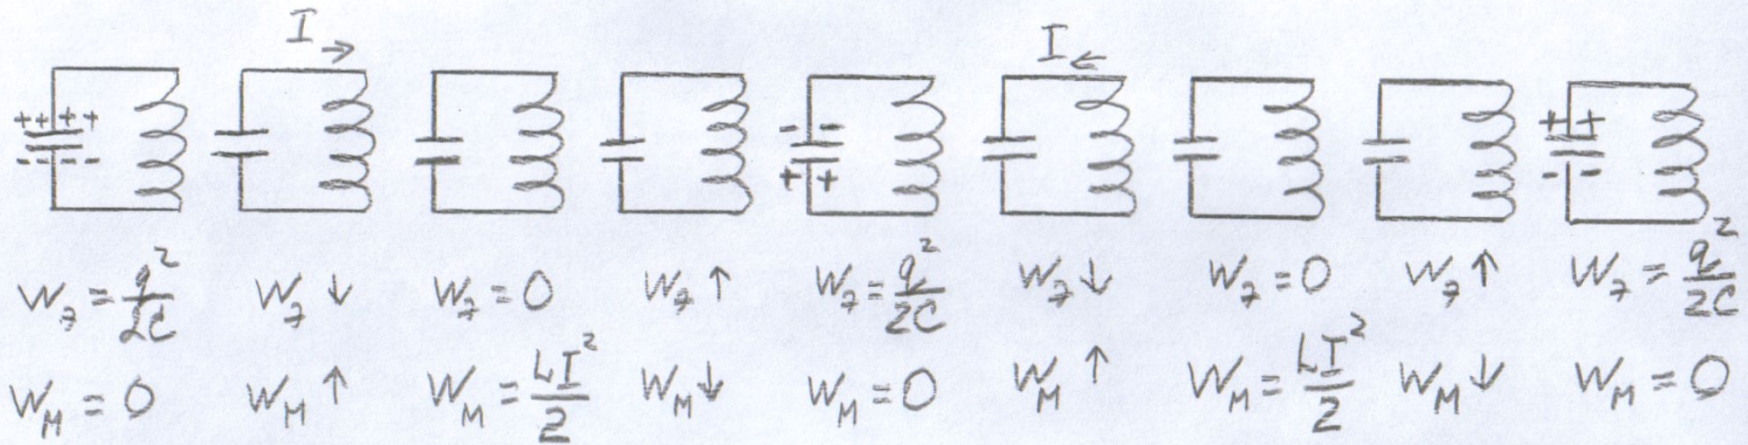 I → I ←
++++ - - ++
---- ++ - -
Wэ = q²/2C Wэ ↓ Wэ = 0 Wэ ↑ Wэ = q²/2C Wэ ↓ Wэ = 0 Wэ ↑ Wэ = q²/2C
Wм = 0 Wм ↑ Wм = LI²/2 Wм ↓ Wм = 0 Wм ↑ Wм = LI²/2 Wм ↓ Wм = 0